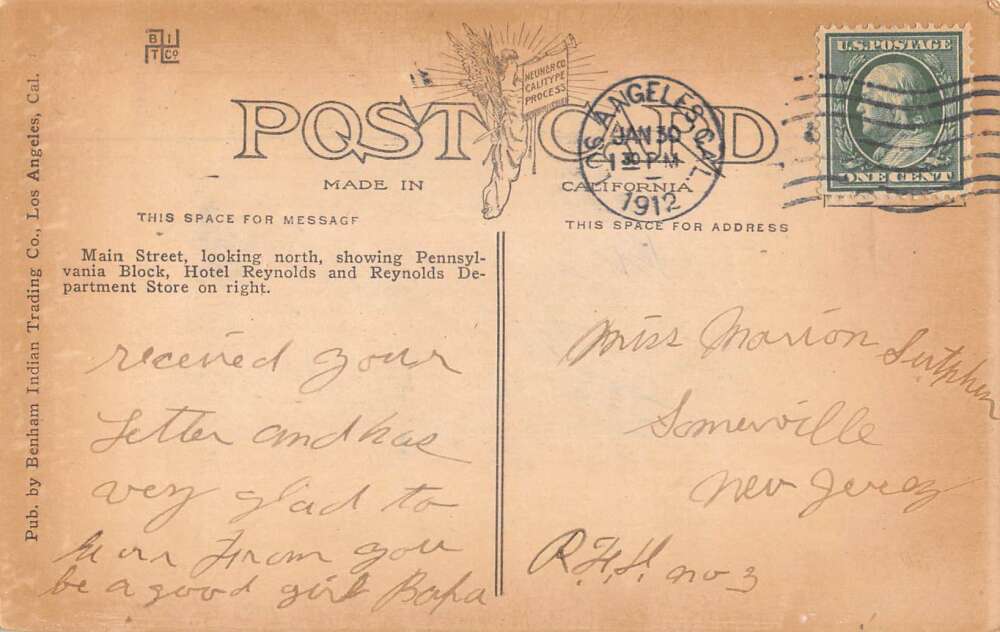 B I
T Co
NEUNER CO
CALITYPE
PROCESS
POST CARD
MADE IN CALIFORNIA
U.S. POSTAGE
ONE CENT
LOS ANGELES, CAL.
JAN 30
1 30 P M
1912
THIS SPACE FOR MESSAGE
THIS SPACE FOR ADDRESS
Main Street, looking north, showing Pennsyl-
vania Block, Hotel Reynolds and Reynolds De-
partment Store on right.
Pub. by Benham Indian Trading Co., Los Angeles, Cal.
received your
Letter and has
very glad to
From you
be a good girl Bapa
Miss Marion Sutphen
Somerville
New Jersey
R.F.D. no 3